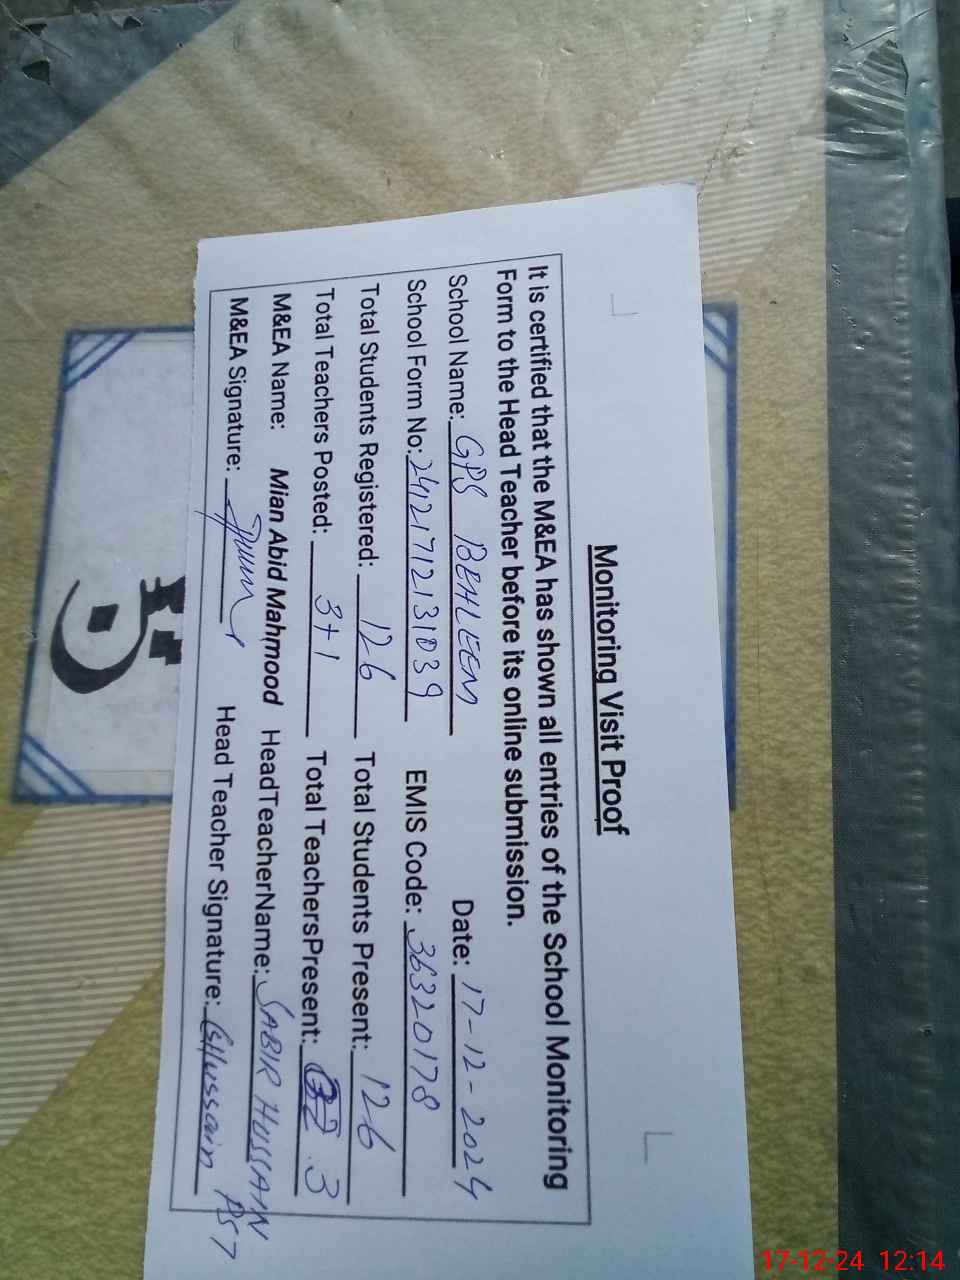 Monitoring Visit Proof
It is certified that the M&EA has shown all entries of the School Monitoring
Form to the Head Teacher before its online submission.
School Name: GPS BEHLEEM Date: 17-12-2024
School Form No: 24121712131039 EMIS Code: 36320178
Total Students Registered: 126 Total Students Present: 126
Total Teachers Posted: 3+1 Total TeachersPresent: 3
M&EA Name: Mian Abid Mahmood HeadTeacherName: SABIR HUSSAIN
M&EA Signature: Head Teacher Signature: GHussain PST
17-12-24 12:14